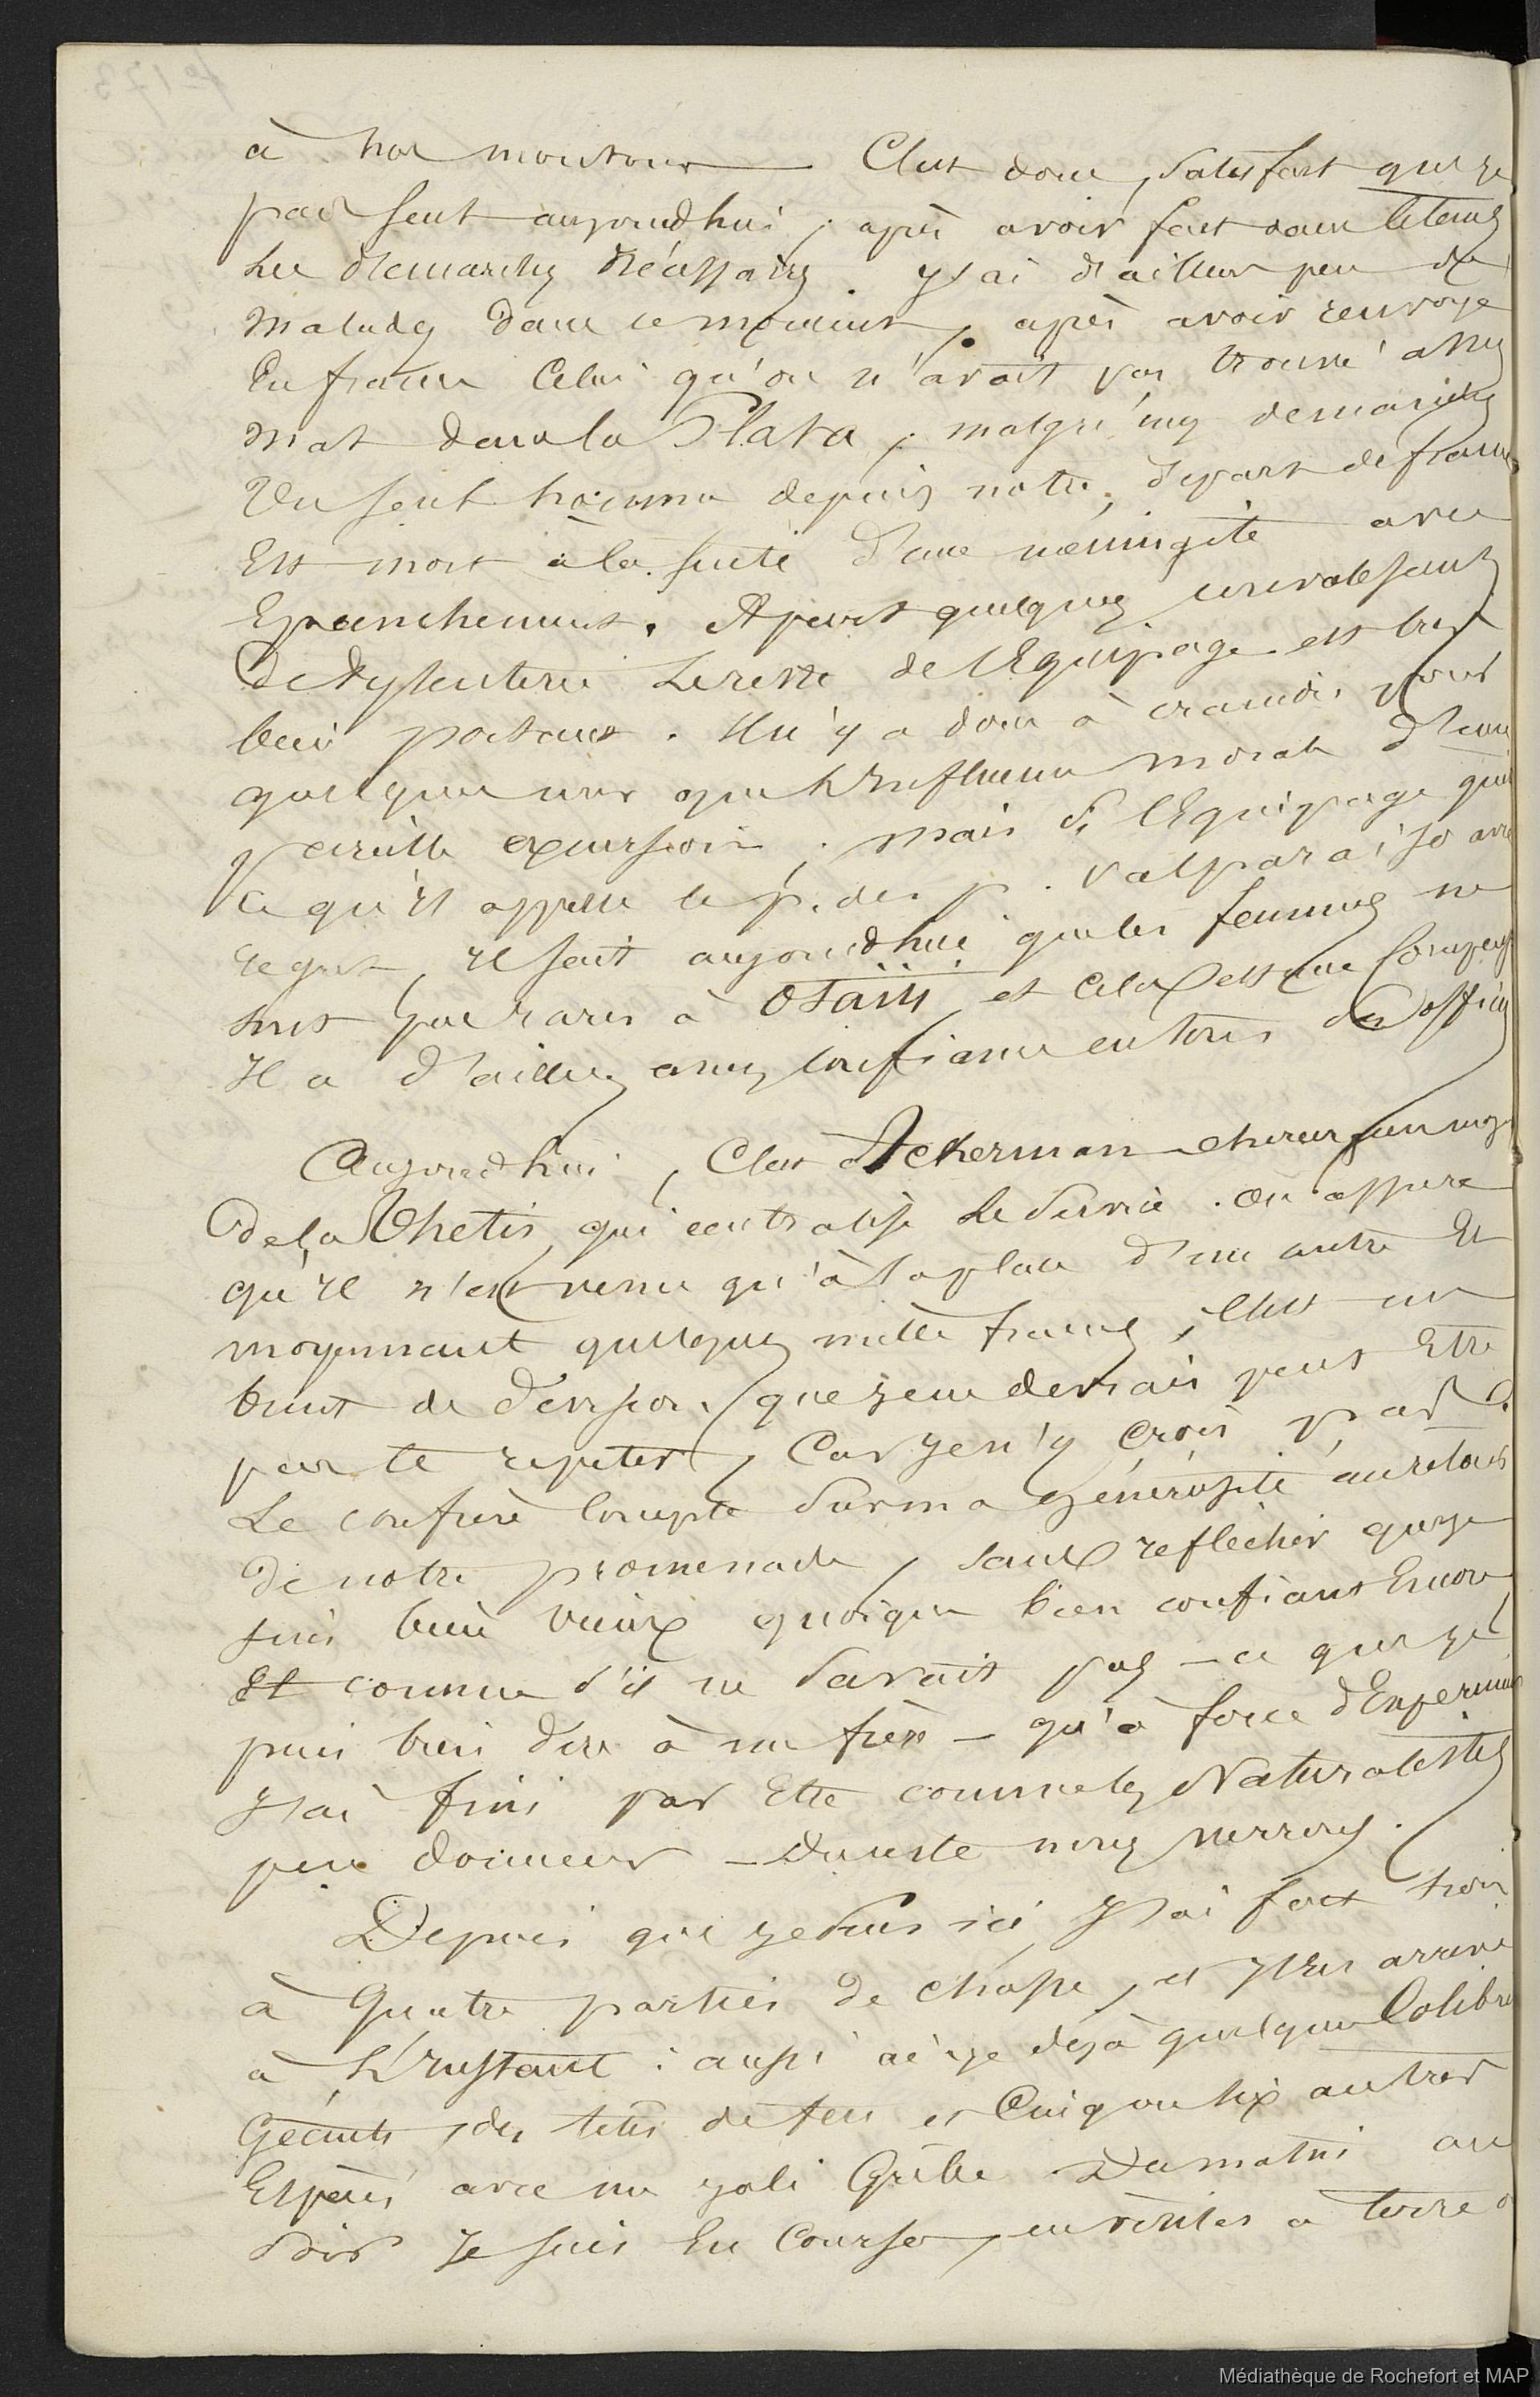 à nos moutons — C'est donc, satisfait que je
pars seul aujourd'hui, après avoir fait dans le tems
les demarches nécessaires. J'ai d'ailleurs peu de
malades dans ce moment, après avoir renvoyé
En france Celui qu'on n'avait pas trouvé assez
mat dans la Plata, malgré mes demarches
Un seul homme depuis notre départ de france
Est mort à la suite d'une méningite avec
Epanchement. Apart quelques convalessants
De dyssenterie Le reste de l'Equipage est très
bien portant. Il n'y a donc à craindre pour
quelques uns que l'Influence morale d'une
pareille excursion; mais si l'Equipage quitte
Ce qu'il appelle le p. des p. Valparaiso avec
regret, il sait aujourd'hui que les femmes ne
sont pas rares à Otaiti et Cela est une Compens
Il a d'ailleurs assez confiance en tous ses officiers
Aujourd'hui, C'est Ackerman chirurgien major
De la Thetis, qui centralise Le Service. On assure
qu'il n'est venu qu'à la place d'un autre Et
moyennant quelques mille francs; C'est un
bruit de division, que je ne devrais peut Etre
pas te repeter, Car je n'y crois pas.
Le confrère Compte Sur ma générosité au retour
De notre promenade, sans reflechir que je
suis bien vieux quoique bien confiant Encore
Et comme s'il ne Savait pas — ce que je
puis bien dire à un frère — qu'à force d'Experience
J'ai fini par Etre comme les Naturalistes
peu donneur — Du reste nous verrons.
Depuis que je suis ici, J'ai fait trois
à Quatre parties de chasse, et J'Y suis arrivé
à L'Instant: aussi ai-je dejà quelques Colibris
Géants, des têtes de feu et Cinq ou six autres
Espèces avec un joli Grèbe Du matin au
Soir Je suis En Courses, en visites a terre o